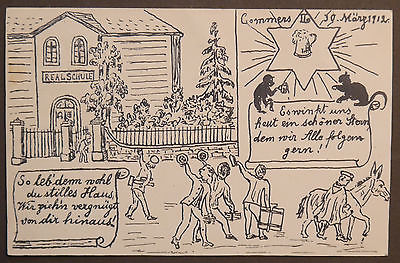 Commers IIo 29. März 1912.
REALSCHULE
Es winkt uns
heut ein schöner Stern,
dem wir Alle folgen
gern!
So leb' denn wohl
du stilles Haus,
Wir zieh'n vergnügt
von dir hinaus!